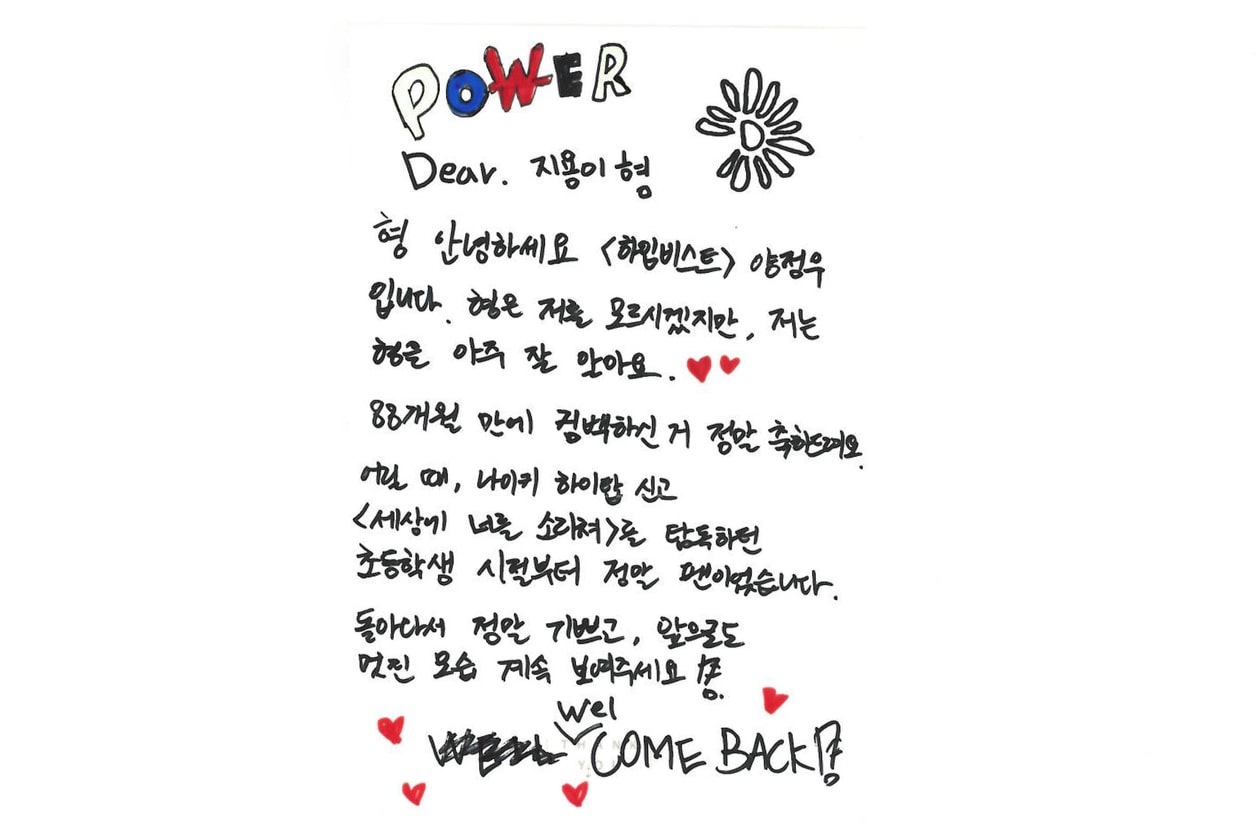 POWER
D
Dear. 지용이 형
형 안녕하세요 <하입비스트> 양정우
입니다. 형은 저를 모르시겠지만, 저는
형을 아주 잘 알아요.
88개월 만에 컴백하신 거 정말 축하드려요.
어릴 때, 나이키 하이탑 신고
<세상에 너를 소리쳐>를 탐독하던
초등학생 시절부터 정말 팬이었습니다.
돌아와서 정말 기쁘고, 앞으로도
멋진 모습 계속 보여주세요 형.
Wel
COME BACK!
THANK
YOU